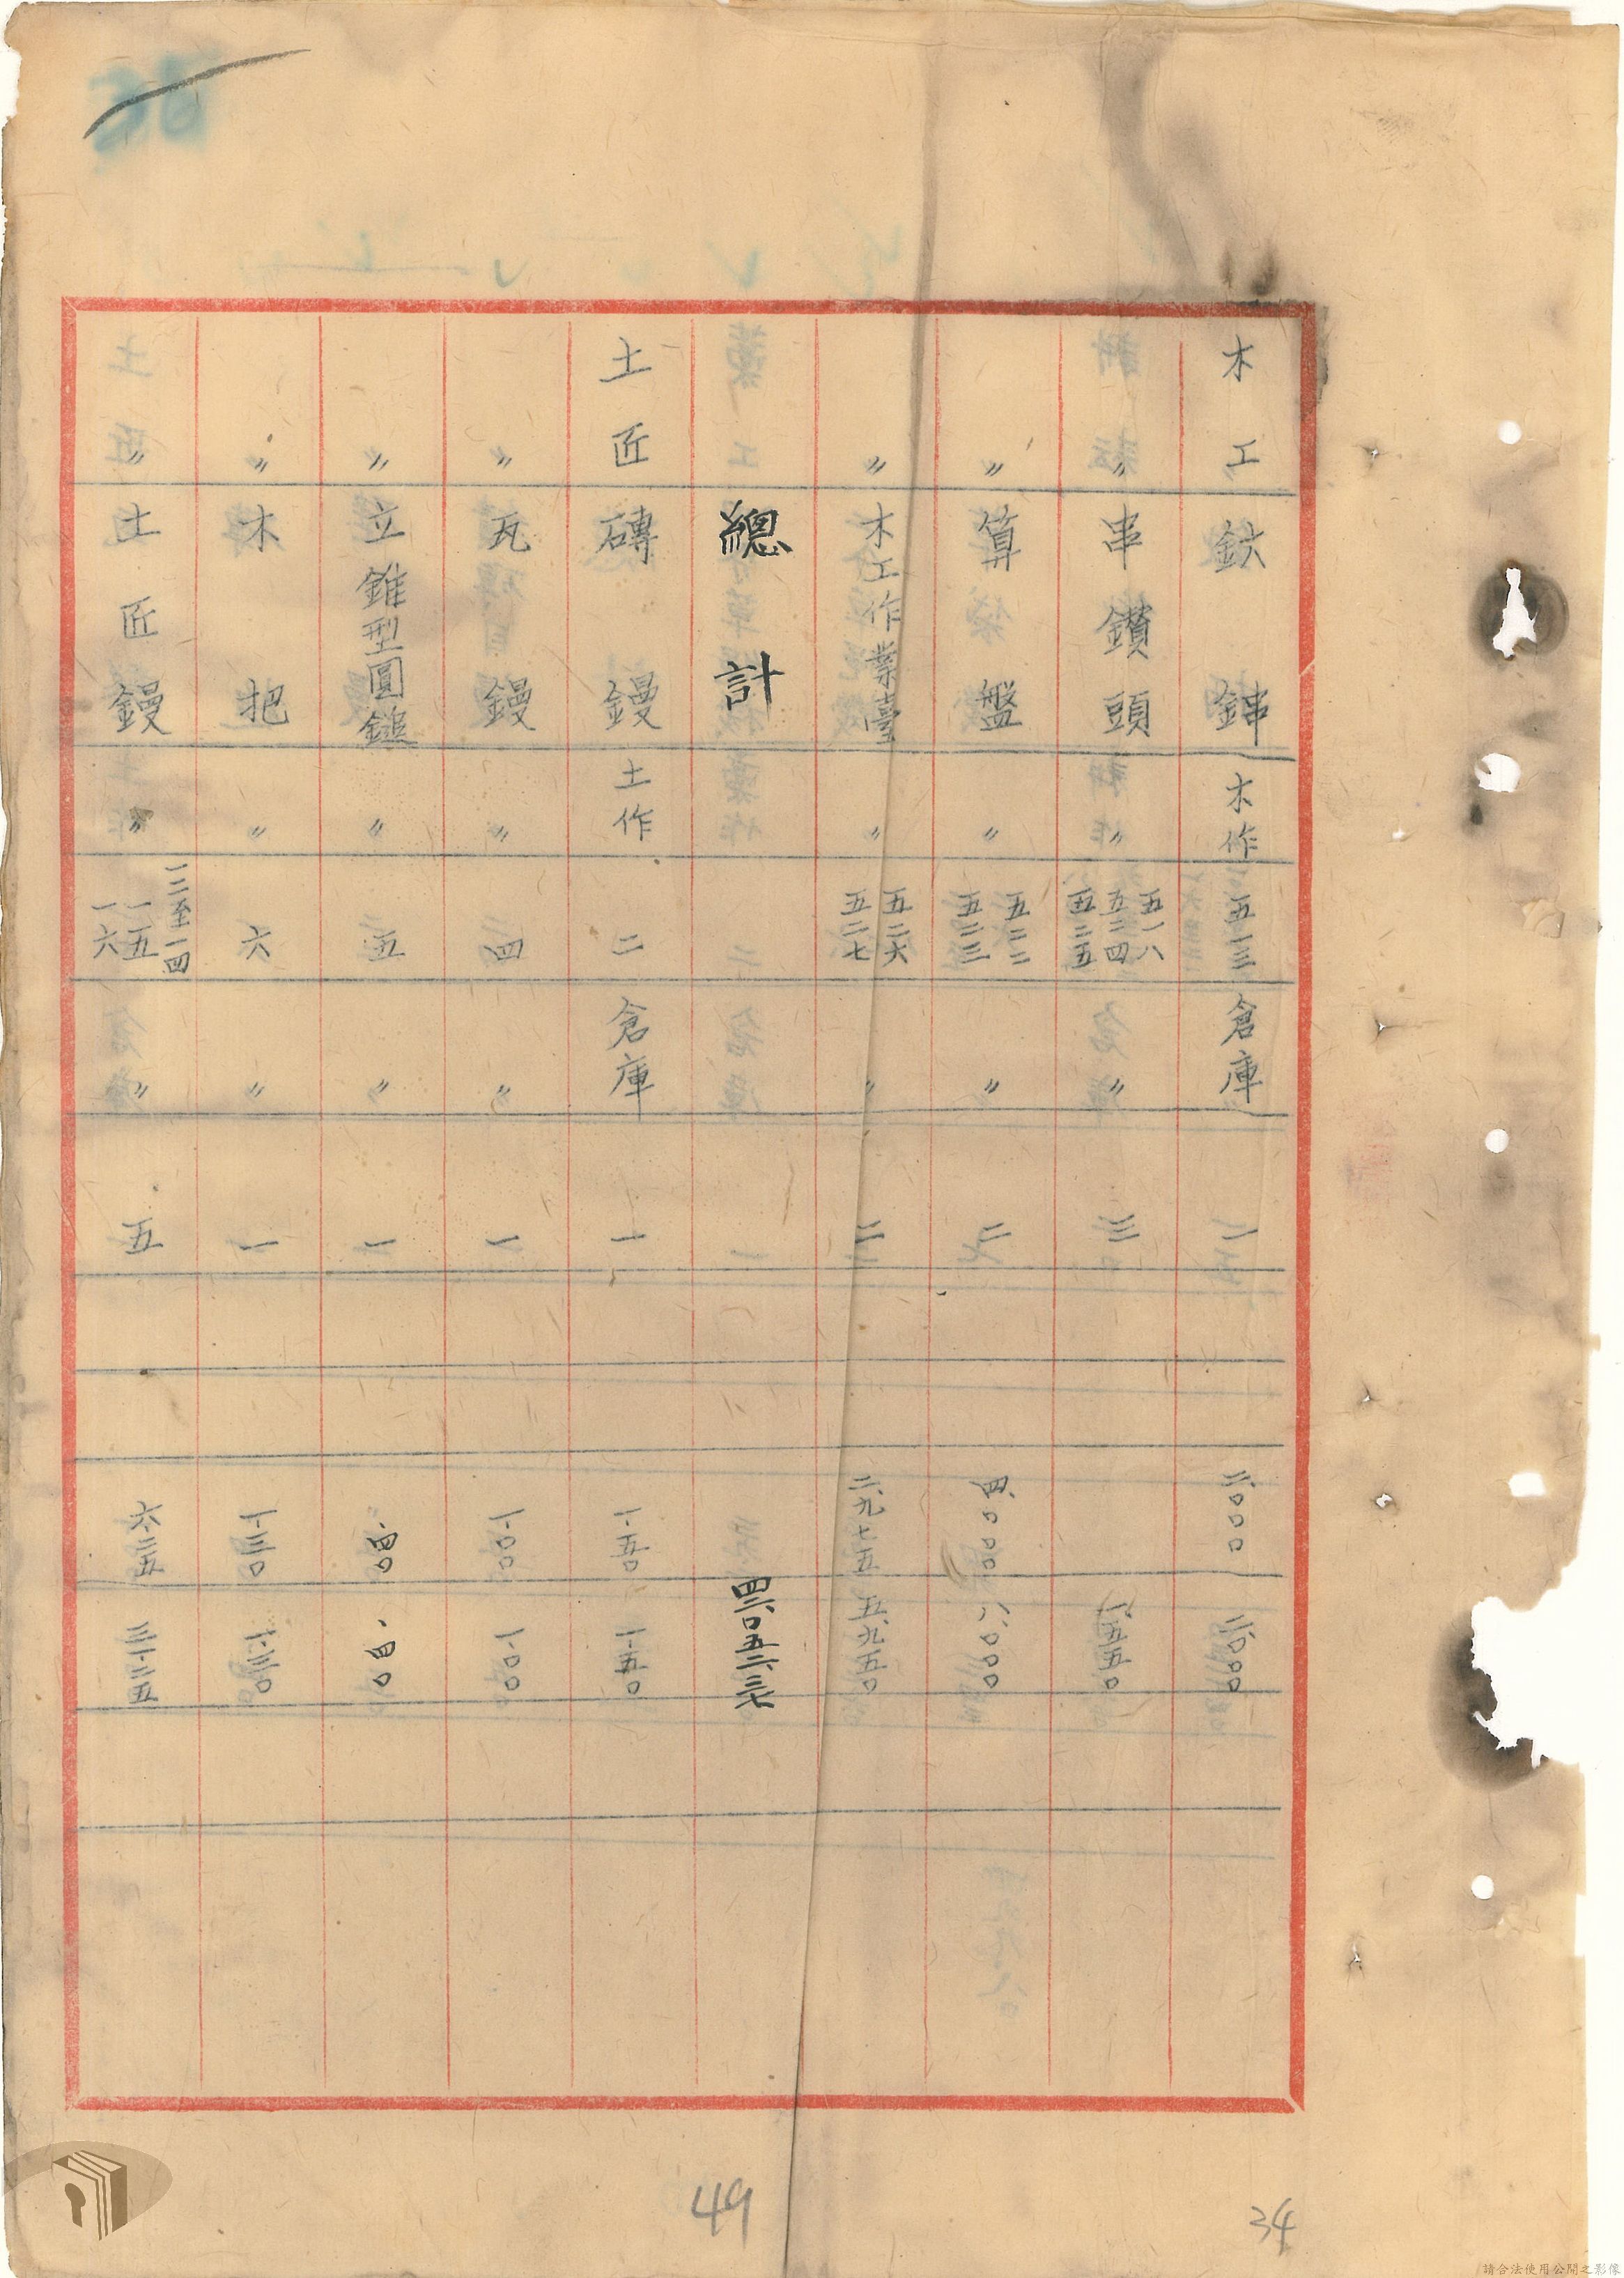 木工 鈦銇 木作 五一三 倉庫 一 二〇.〇〇 二〇.〇〇
〃 串鑽頭 〃 五一八 五二四 五二五 〃 三 一.五五〇
〃 算盤 〃 五二二 五二三 〃 二 四.〇〇〇 八.〇〇〇
〃 木工作業臺 〃 五二六 五二七 〃 二 二.九七五 五.九五〇
總計
土匠 磚鏝 土作 二 倉庫 一 一.五〇 一.五〇
〃 瓦鏝 〃 四 〃 一 一.〇〇 一.〇〇
〃 立錐型圓鎚 〃 五 〃 一 .四〇 .四〇
〃 木把 〃 六 〃 一 一.三〇 一.三〇
〃 土匠鏝 〃 一二至一四 一五 一六 〃 五 六.二五 三一.二五
49
34
請合法使用公開之影像